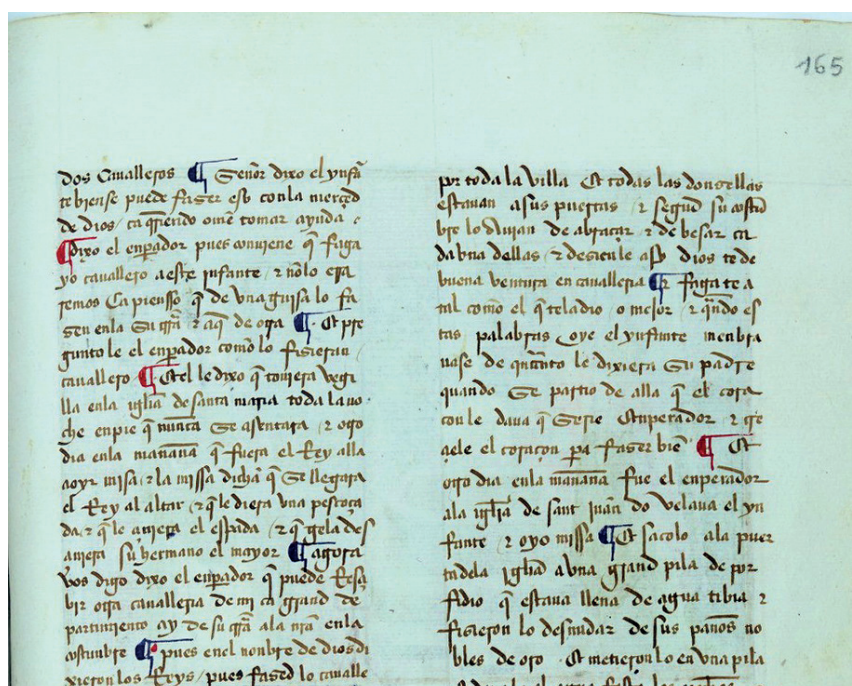 165
dos Cavalleros ¶ Señor dixo el ynfã
te biense puede faser esto conla merçed
de dios / ca q̃riendo ome tomar ayuda
¶ Dixo el enp̃ador pues conviene q̃ faga
yo cavallero aeste jnfante / τ nõlo era
remos Ca piensso q̃ de vna guisa lo fa
sen enla su tr̃ra τ aq̃ de otra ¶ Et pre
gunto le el enp̃ador como lo fisieran
cavallero ¶ Et el le dixo q̃ toviera vegi
lla enla iglĩa de santa maria toda la no
che enpie q̃ nunca se asentara / τ otro
dia enla mañana q̃ fuera el Rey alla
aoyr misa / τ la missa dicha q̃ se llegara
el Rey al altar / τ q̃ le diera vna pescoça
da / τ q̃ le çiniera el espada / τ q̃ gela des
çiniera su hermano el mayor ¶ agora
vos digo dixo el enp̃ador q̃ puede Resçe
bir otra cavalleria de mi ca grand de
partimiento ay de su tr̃ra ala nr̃a enla
costunbre ¶ pues enel nonbre de dios di
xieron los Reys / pues fased lo cavalle
por toda la villa Et todas las donsellas
estavan asus puertas / τ segund su costũ
bre lo avian de abraçar / τ de besar ca
da vna dellas / τ desien le asy dios te de
buena ventura en cavalleria ¶ τ fagate a
tal como el q̃ tela dio / o mejor / τ q̃ndo es
tas palabras oye el ynfante menbra
vase de quanto le dixiera su padre
quando se partio de alla q̃ el cora
con le dava q̃ serie Enperador / τ cre
çiele el coraçon pa faser bie ¶ Et
otro dia enla mañana fue el enperador
ala iglĩa de sant iuan do velava el yn
fante / τ oyo missa ¶ Et sacolo ala puer
ta dela iglĩa avna grand pila de por
fidio q̃ estava llena de agua tibia τ
fisieron lo desnudar de sus paños no
bles de oro Et metieron lo en vna pila